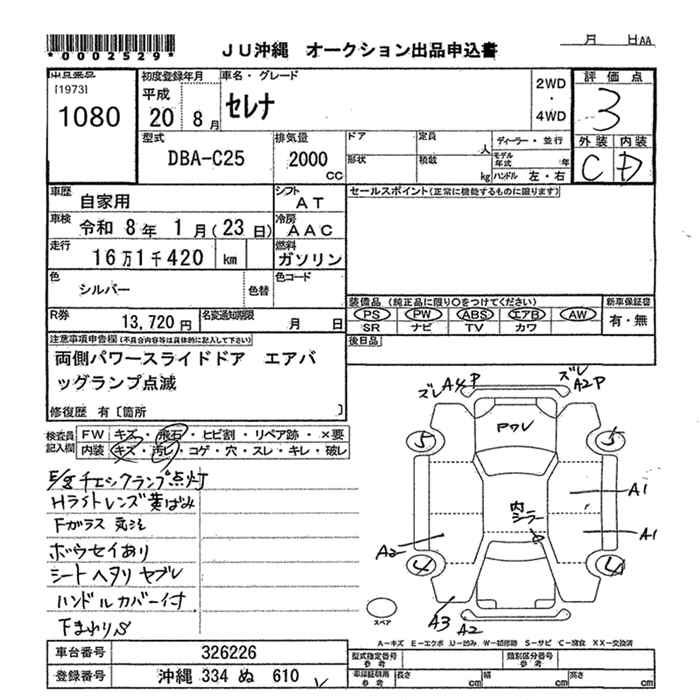 *0002529*
JU沖縄 オークション出品申込書
月 日AA
出品票番
[1973]
1080
初度登録年月
平成
20 8月
車名・グレード
セレナ
2WD
・
4WD
評価点
3
外装 内装
C D
型式
DBA-C25
排気量
2000
CC
ドア
定員
人
形状
積載
kg
ディーラー・並行
モデル
年式
年
ハンドル 左・右
車歴
自家用
シフト
AT
車検
令和 8年 1月(23日)
冷房
AAC
走行
16万1千420 km
燃料
ガソリン
色
シルバー
色替
色コード
R券
13,720円
名変通知期限
月 日
セールスポイント(正常に機能するものに限ります)
装備品 (純正品に限り○をつけてください)
新車保証書
PS PW ABS エアB AW
SR ナビ TV カワ
有・無
後日品
注意事項申告欄(不具合内容等は具体的に記入して下さい)
両側パワースライドドア エアバ
ッグランプ点滅
修復歴 有〔箇所 〕
検査員
記入欄
FW キズ・飛石・ヒビ割・リペア跡・×要
内装 キズ・汚レ・コゲ・穴・スレ・キレ・破レ
チェックランプ点灯
Hライトレンズ黄ばみ
Fガラス
ボウセイあり
シートヘタリ ヤブレ
ハンドルカバー付
下まわりS
ズレ A4P
ズレ
A2P
Pワレ
5
5
A1
内
シーラー
A1
A2
4
4
A3
A2
スペア
A-キズ E-エクボ U-凹み W-補修跡 S-サビ C-腐食 XX-交換済
車台番号
326226
登録番号
沖縄 334 ぬ 610
型式指定番号
参考
類別区分番号
参考
車検証採用
参考
長さ
cm
幅
cm
高さ
cm